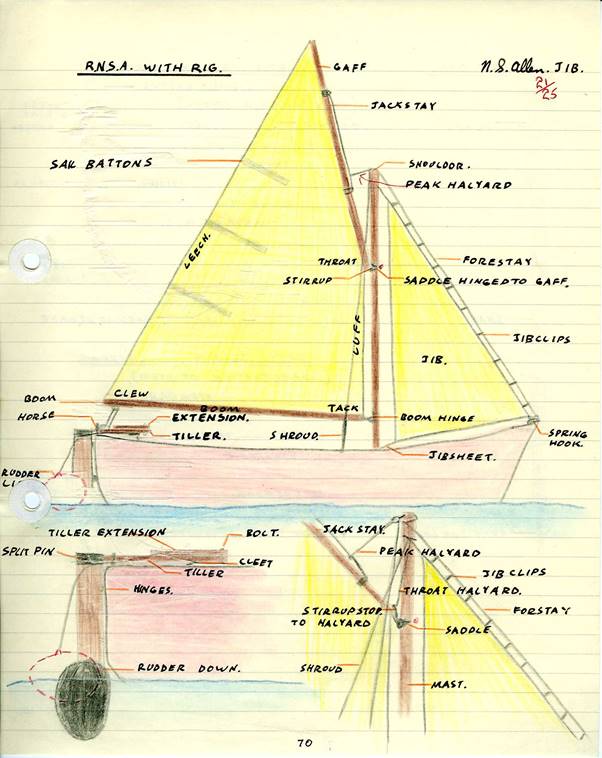 R.N.S.A. WITH RIG.
N.S. Allen. J1B.
21/25
GAFF
JACKSTAY
SAIL BATTONS
SHOULDOR.
PEAK HALYARD
LEECH.
THROAT
FORESTAY
STIRRUP
SADDLE HINGED TO GAFF.
LUFF
JIBCLIPS
JIB.
BOOM
CLEW
BOOM
TACK
HORSE
EXTENSION.
BOOM HINGE
TILLER.
SHROUD.
SPRING
HOOK.
JIBSHEET.
RUDDER
JACKSTAY.
TILLER EXTENSION
BOLT.
SPLIT PIN
PEAK HALYARD
CLEET
TILLER
JIB CLIPS
HINGES.
THROAT HALYARD.
STIRRUP STOP.
TO HALYARD
FORSTAY
SADDLE
RUDDER DOWN.
SHROUD
MAST.
70